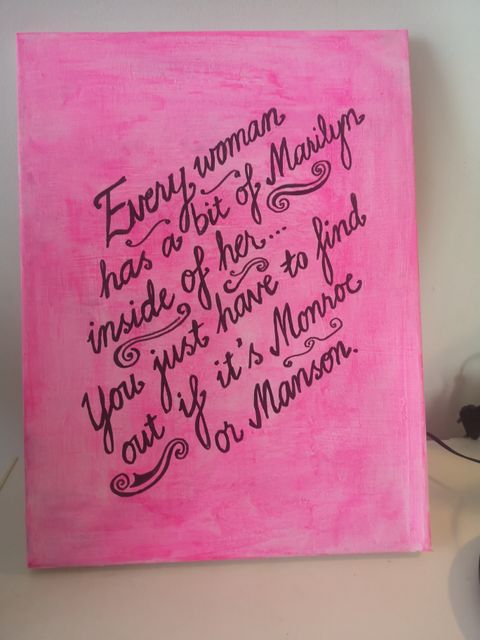 Every woman
has a bit of Marilyn
inside of her...
You just have to find
out if it's Monroe
or Manson.